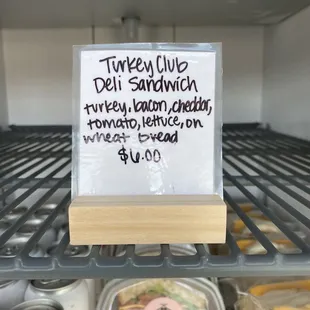 Turkey Club
Deli Sandwich
turkey, bacon, cheddar,
tomato, lettuce, on
wheat bread
$6.00